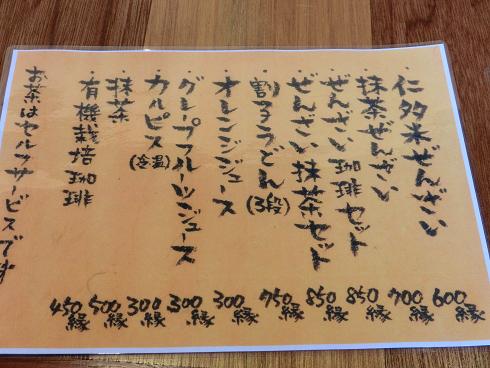 ・仁多米ぜんざい 600縁
・抹茶ぜんざい 700縁
・ぜんざい珈琲セット 850縁
・ぜんざい抹茶セット 850縁
・割子うどん(3段) 750縁
・オレンジジュース 300縁
・グレープフルーツジュース 300縁
・カルピス(冷温) 300縁
・抹茶 500縁
・有機栽培珈琲 450縁
お茶はセルフサービスです